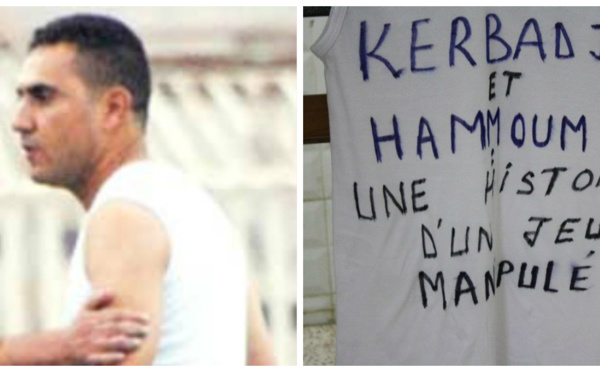 KERBADJ
ET
HAMMOUM
UNE HISTO
D'UN JEU
MANIPULÉ